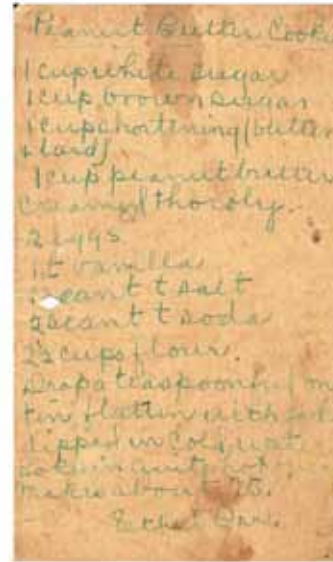 Peanut Butter Cook
1 cup white sugar
1 cup brown sugar
1 cup shortening (butter
& lard)
1 cup peanut butter
Cream thoroly.
2 eggs
1 t vanilla
scant t salt
2 scant t soda
2½ cups flour.
Drop teaspoonful on
tin flatten with
dipped in cold wat
makes about 75.
Ethel